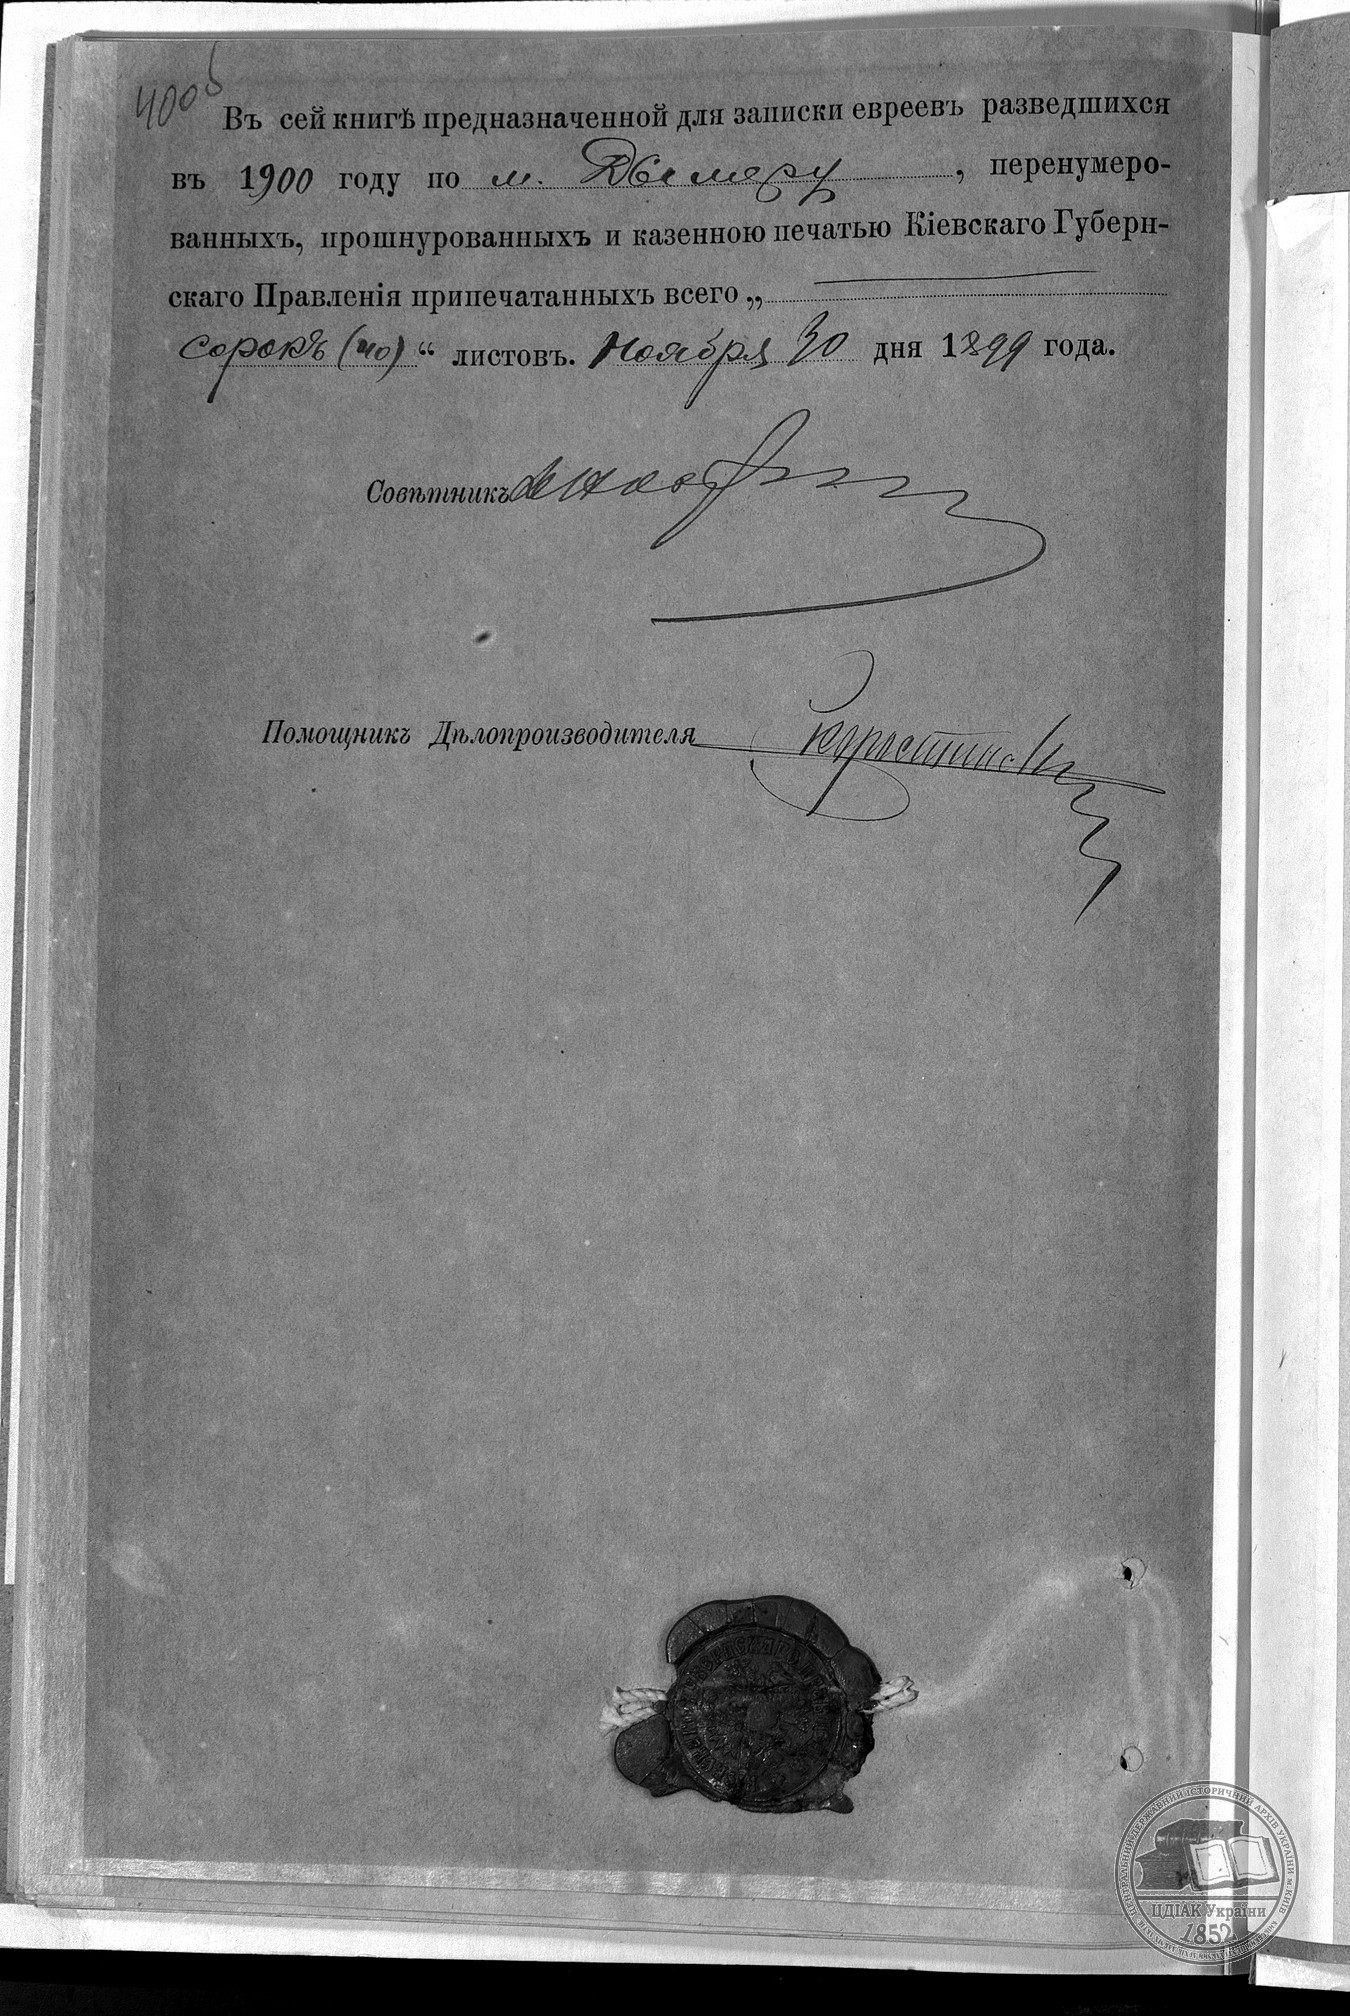 400б
Въ сей книгѣ предназначенной для записки евреевъ разведшихся
въ 1900 году по м. Дымеру, перенумеро-
ванныхъ, прошнурованныхъ и казенною печатью Кіевскаго Губерн-
скаго Правленія припечатанныхъ всего „
сорокъ (40)“ листовъ. Ноября 30 дня 1899 года.
Совѣтникъ
Помощникъ Дѣлопроизводителя
ЦЕНТРАЛЬНИЙ ДЕРЖАВНИЙ ІСТОРИЧНИЙ АРХІВ УКРАЇНИ м. КИЇВ
ЦДІАК України
1852